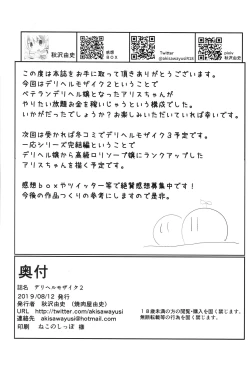 秋沢由史
感想
BOX
Twitter
@akisawayusiR18
pixiv
秋沢由史
この度は本誌をお手に取って頂きありがとうございます。
今回はデリヘルモザイク2ということで
ベテランデリヘル嬢となったアリスちゃんが
やりたい放題お金を稼いじゃうという構成でした。
いかがだったでしょうか?お楽しみいただいていれば幸いです。
次回は受かれば冬コミでデリヘルモザイク3予定です。
一応シリーズ完結編ということで
デリヘル嬢から高級ロリソープ嬢にランクアップした
アリスちゃんを描く予定です。
感想boxやツイッター等で絶賛感想募集中です!
今後の作品づくりの参考にしますので是非。
奥付
誌名 デリヘルモザイク2
2019/08/12 発行
発行者 秋沢由史 (焼肉屋由史)
URL http://twitter.com/akisawayusi
連絡先 akisawayusi@hotmail.com
印刷 ねこのしっぽ 様
18歳未満の方の閲覧・購入を固く禁じます。
無断転載等の行為を固く禁じます。